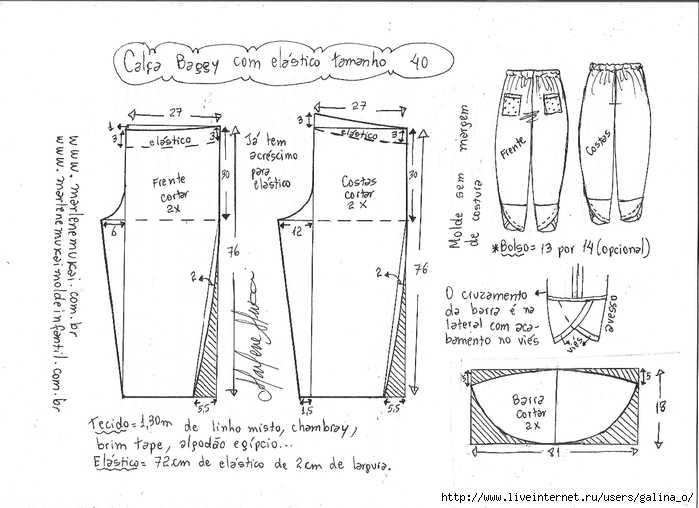 Calça Baggy com elástico tamanho 40
27
1
3
3
elástico
Frente
cortar
2x
30
6
76
2
5,5
Já tem
acréscimo
para
elástico
27
3
elástico
3
Costas
cortar
2x
30
12
76
2
1,5
5,5
www.marlenemukai.com.br
www.marlenemukaimoldeinfantil.com.br
Marlene Mukai
Molde sem margem
de costura
Frente
Costas
*Bolso= 13 por 14 (opcional)
O cruzamento
da barra é na
lateral com aca-
bamento no viés
avesso
viés
3
5
Barra
cortar
2x
18
81
Tecido= 1,30m de linho misto, chambray,
brim tape, algodão egípcio...
Elástico= 72cm de elástico de 2cm de largura.
http://www.liveinternet.ru/users/galina_o/